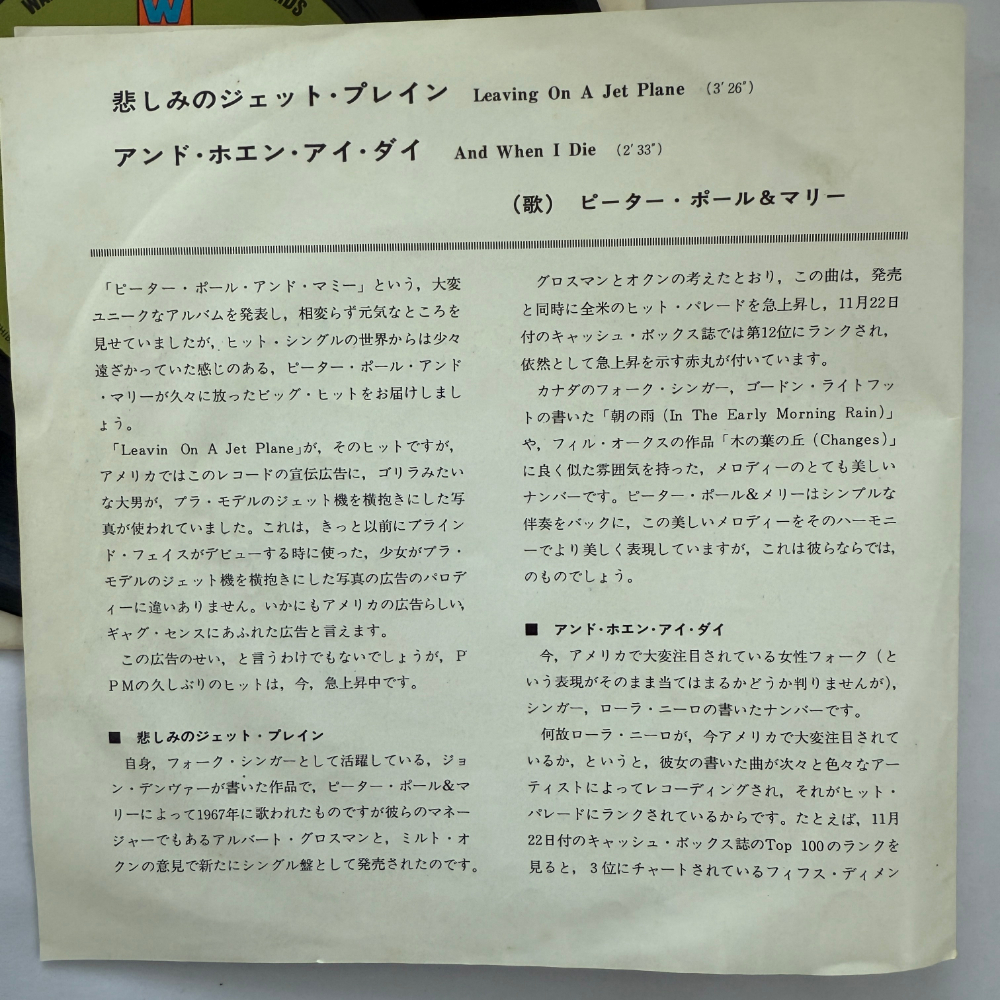 W
悲しみのジェット・プレイン Leaving On A Jet Plane （3′26″）
アンド・ホエン・アイ・ダイ And When I Die （2′33″）
（歌） ピーター・ポール＆マリー
「ピーター・ポール・アンド・マミー」という，大変
ユニークなアルバムを発表し，相変らず元気なところを
見せていましたが，ヒット・シングルの世界からは少々
遠ざかっていた感じのある，ピーター・ポール・アンド
・マリーが久々に放ったビッグ・ヒットをお届けしまし
ょう。
「Leavin On A Jet Plane」が，そのヒットですが，
アメリカではこのレコードの宣伝広告に，ゴリラみたい
な大男が，プラ・モデルのジェット機を横抱きにした写
真が使われていました。これは，きっと以前にブライン
ド・フェイスがデビューする時に使った，少女がプラ・
モデルのジェット機を横抱きにした写真の広告のパロデ
ィーに違いありません。いかにもアメリカの広告らしい，
ギャグ・センスにあふれた広告と言えます。
この広告のせい，と言うわけでもないでしょうが，Ｐ
ＰＭの久しぶりのヒットは，今，急上昇中です。
■ 悲しみのジェット・プレイン
自身，フォーク・シンガーとして活躍している，ジョ
ン・デンヴァーが書いた作品で，ピーター・ポール＆マ
リーによって1967年に歌われたものですが彼らのマネー
ジャーでもあるアルバート・グロスマンと，ミルト・オ
クンの意見で新たにシングル盤として発売されたのです。
グロスマンとオクンの考えたとおり，この曲は，発売
と同時に全米のヒット・パレードを急上昇し，11月22日
付のキャッシュ・ボックス誌では第12位にランクされ，
依然として急上昇を示す赤丸が付いています。
カナダのフォーク・シンガー，ゴードン・ライトフッ
トの書いた「朝の雨（In The Early Morning Rain）」
や，フィル・オークスの作品「木の葉の丘（Changes）」
に良く似た雰囲気を持った，メロディーのとても美しい
ナンバーです。ピーター・ポール＆メリーはシンプルな
伴奏をバックに，この美しいメロディーをそのハーモニ
ーでより美しく表現していますが，これは彼らならでは，
のものでしょう。
■ アンド・ホエン・アイ・ダイ
今，アメリカで大変注目されている女性フォーク（と
いう表現がそのまま当てはまるかどうか判りませんが），
シンガー，ローラ・ニーロの書いたナンバーです。
何故ローラ・ニーロが，今アメリカで大変注目されて
いるか，というと，彼女の書いた曲が次々と色々なアー
ティストによってレコーディングされ，それがヒット・
パレードにランクされているからです。たとえば，11月
22日付のキャッシュ・ボックス誌のTop 100のランクを
見ると，３位にチャートされているフィフス・ディメン